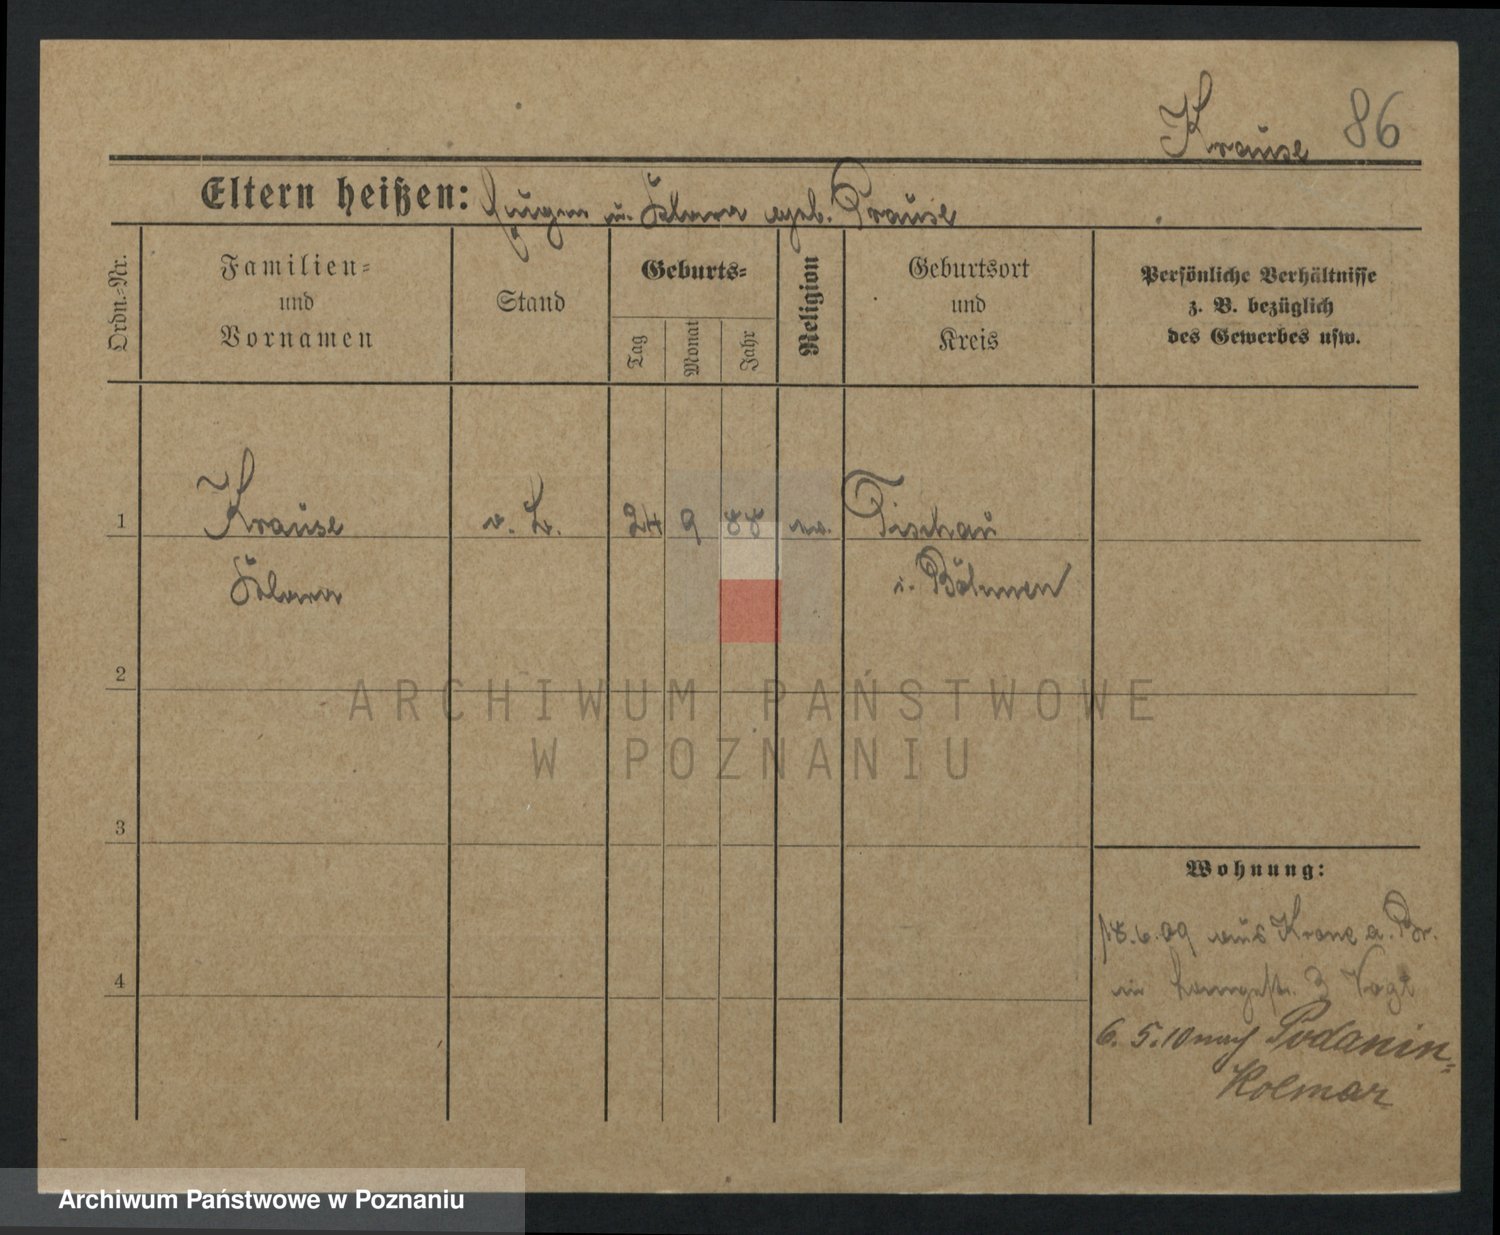 Krause 86
Eltern heißen: Eugen u. Klara geb. Krause
Ordn.=Nr.
Familien=
und
Vornamen
Stand
Geburts=
Tag
Monat
Jahr
Religion
Geburtsort
und
Kreis
Persönliche Verhältnisse
z. B. bezüglich
des Gewerbes usw.
1 Krause 24 9 88 ev. Tischau
Klara i. Böhmen
2
ARCHIWUM PAŃSTWOWE
W POZNANIU
3
Wohnung:
18.6.09 aus Krone a. Br.
4
3 Vogt
6. 5. 10 nach Podanin=
Kolmar
Archiwum Państwowe w Poznaniu